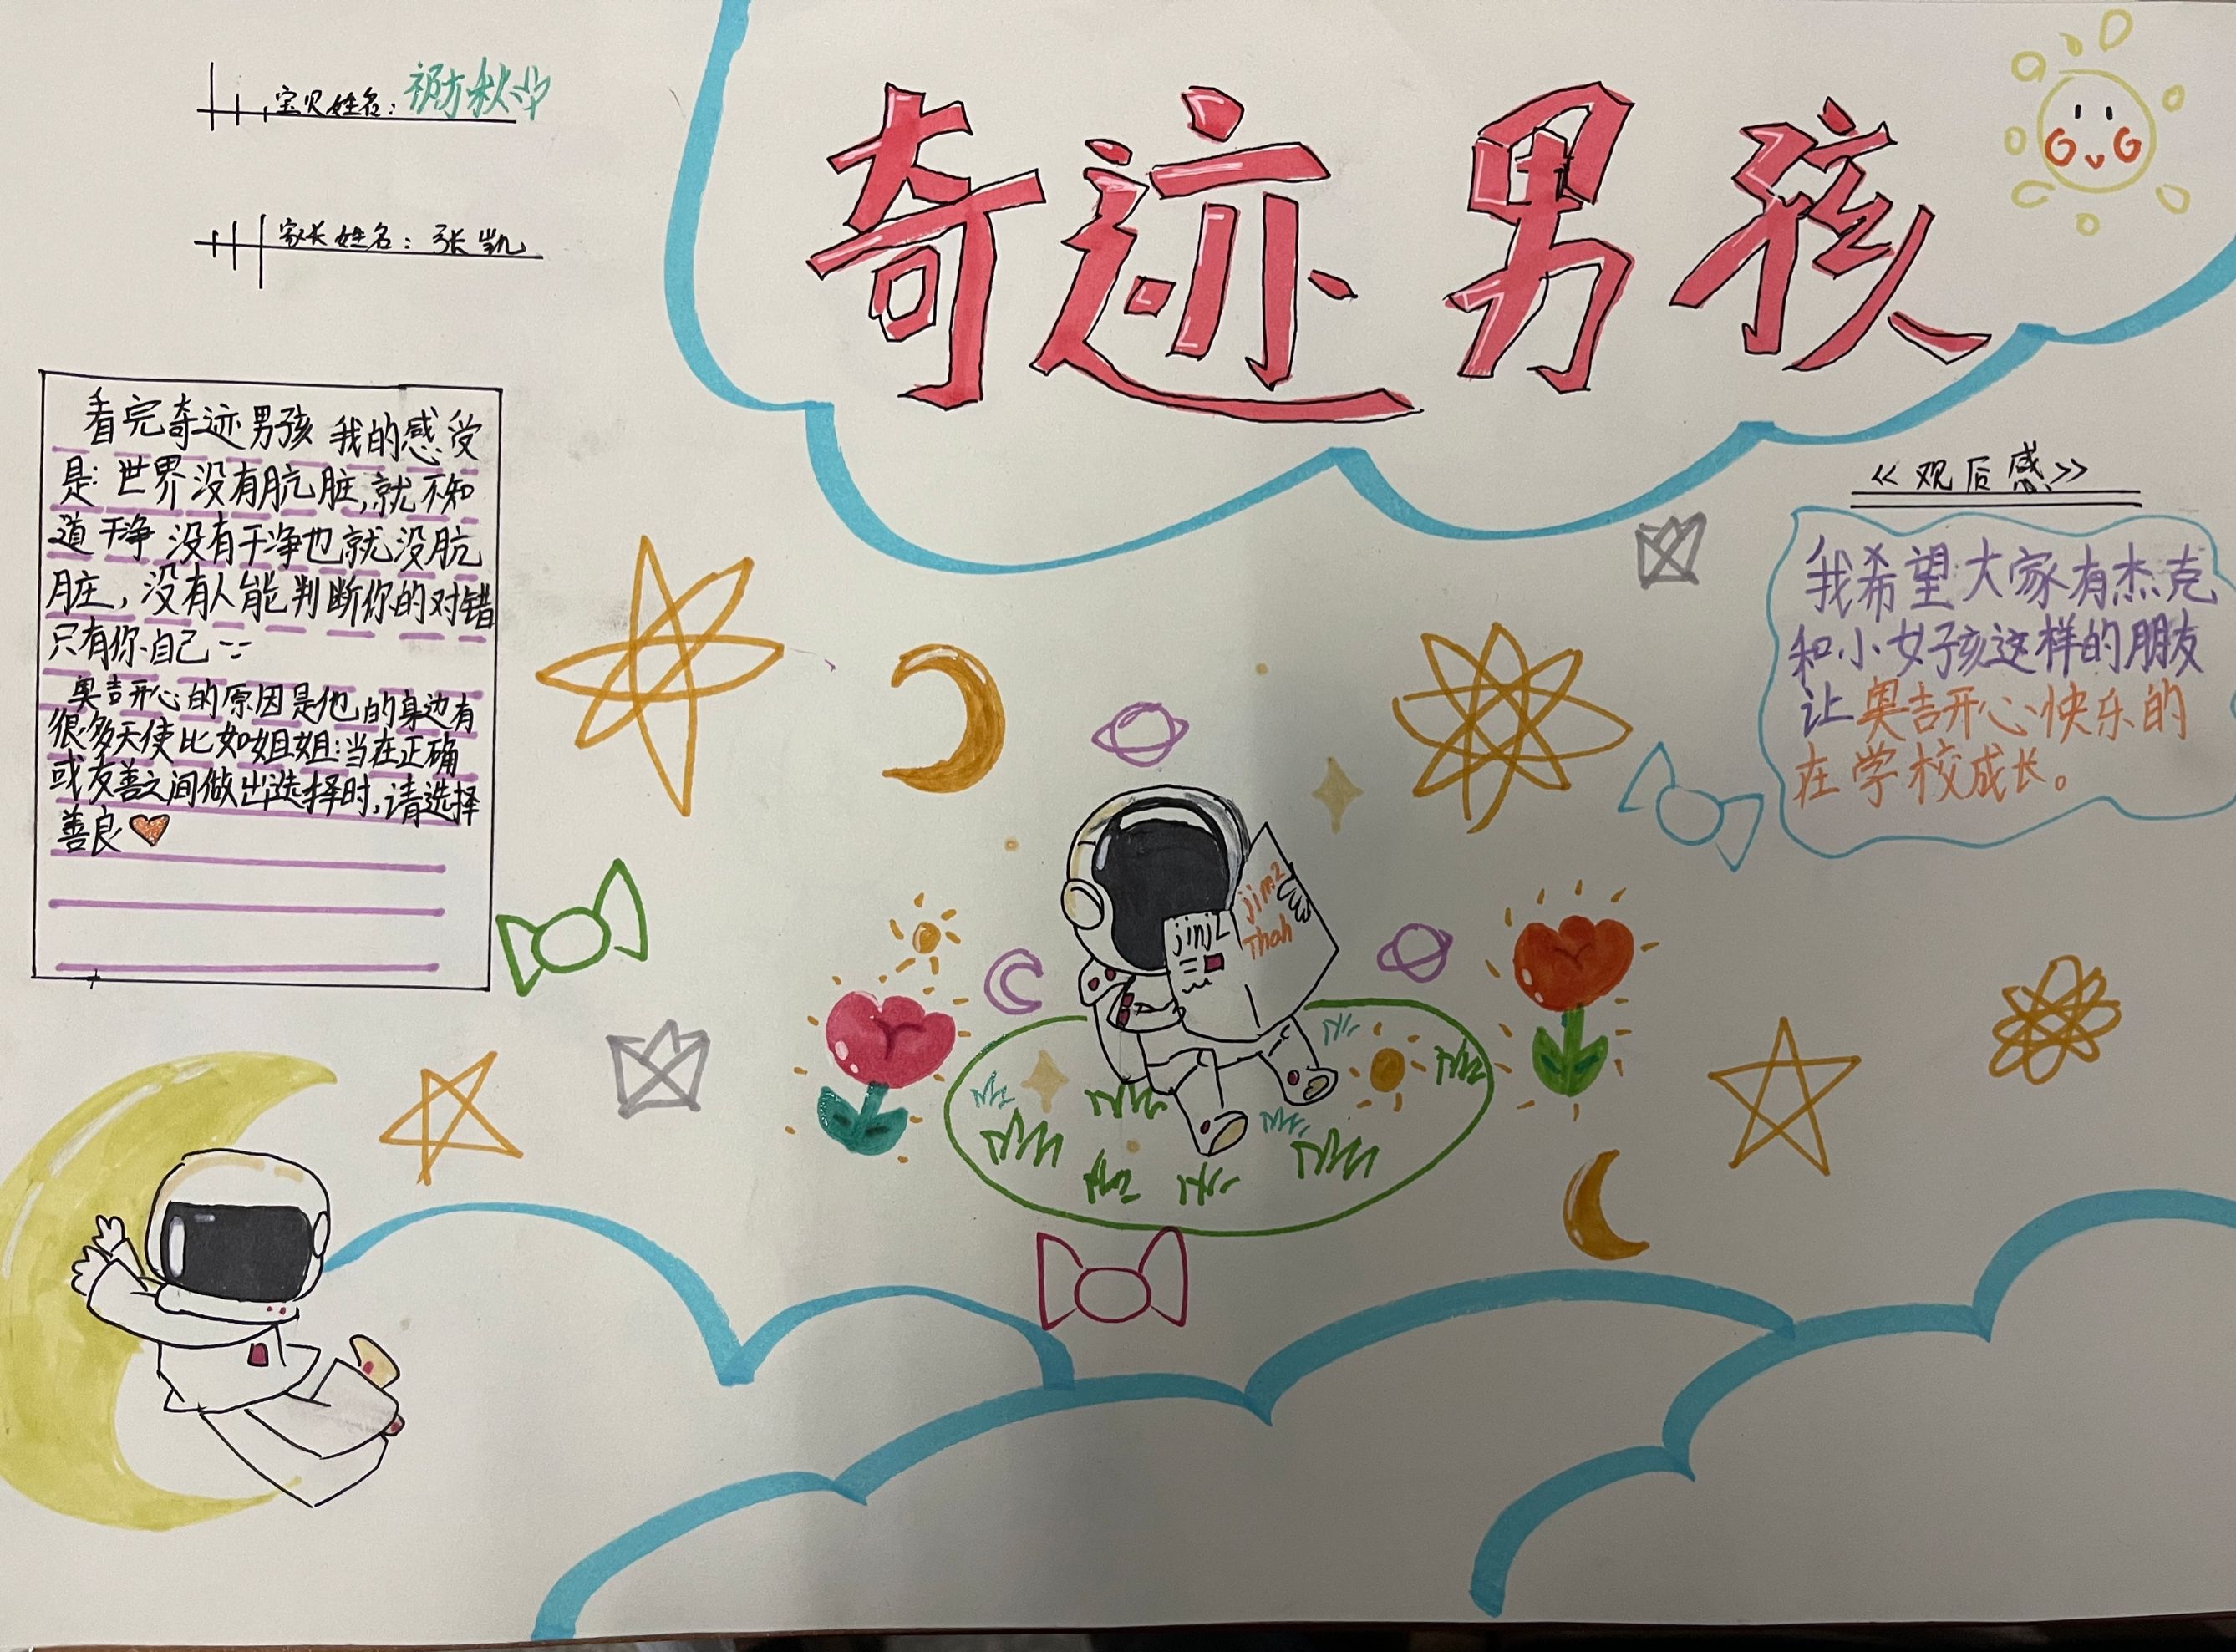 宝贝姓名:祁秋
家长姓名:张凯
奇迹男孩
看完奇迹男孩 我的感受
是:世界没有肮脏,就不知
道干净 没有干净也就没肮
脏,没有人能判断你的对错
只有你自己
奥吉开心的原因是他的身边有
很多天使比如姐姐:当在正确
或友善之间做出选择时,请选择
善良
《观后感》
我希望大家有杰克
和小女孩这样的朋友
让奥吉开心快乐的
在学校成长。